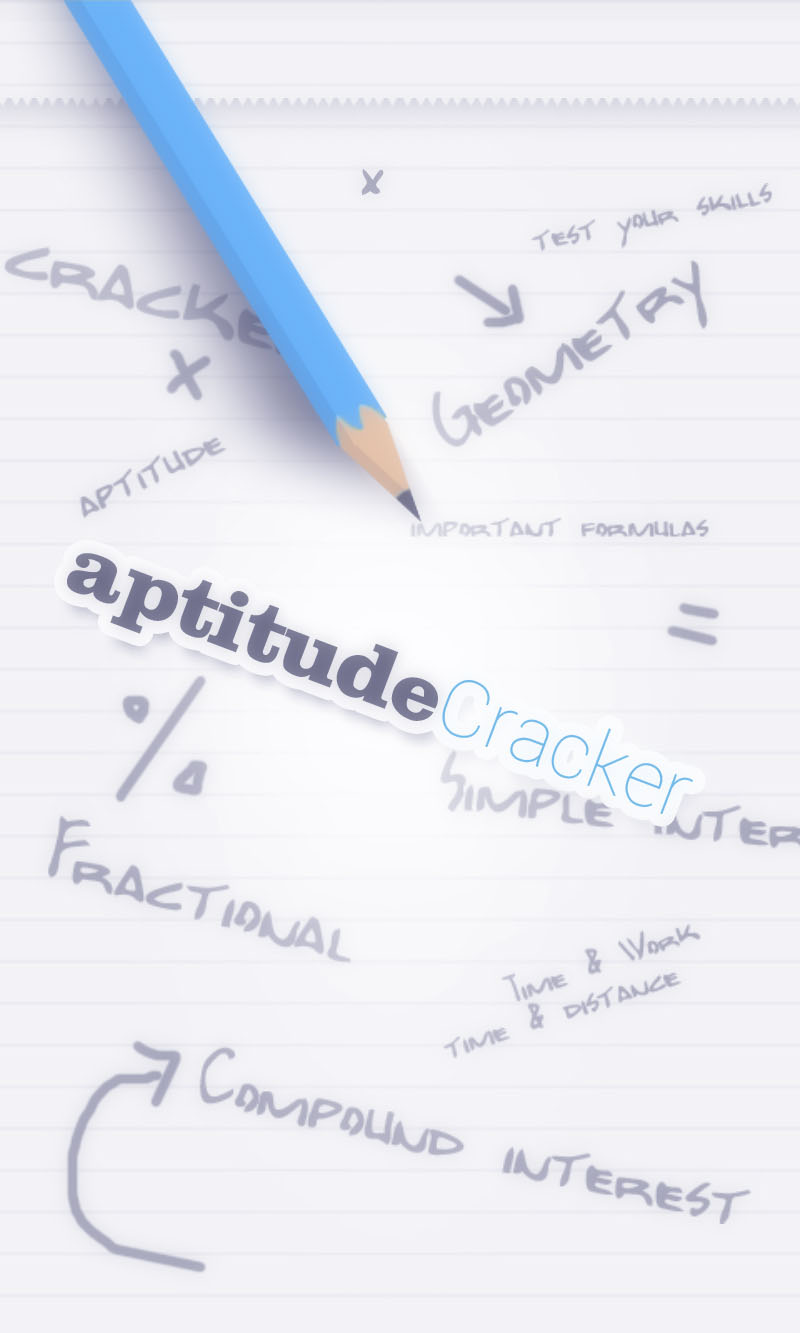 x
TEST YOUR SKILLS
CRACKE
GEOMETRY
x
APTITUDE
IMPORTANT FORMULAS
=
aptitudeCracker
%
SIMPLE INTER
FRACTIONAL
TIME & WORK
TIME & DISTANCE
COMPOUND INTEREST